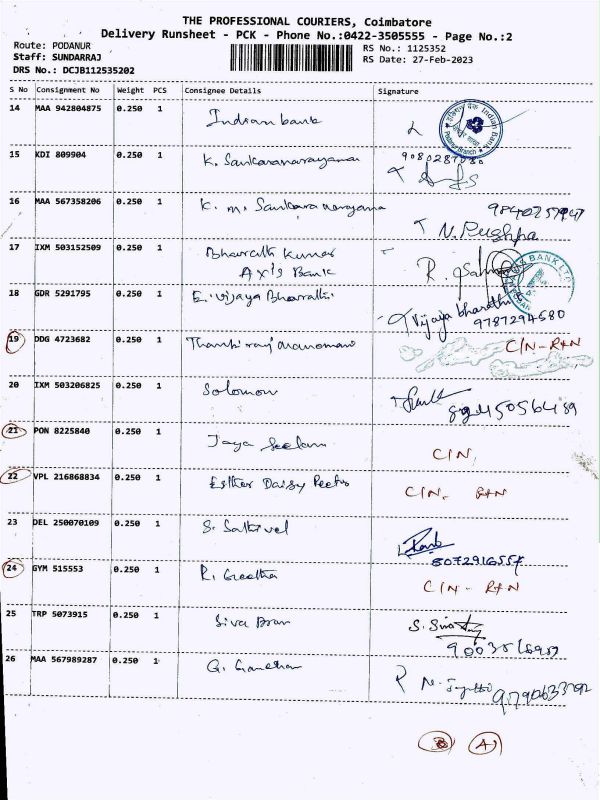 THE PROFESSIONAL COURIERS, Coimbatore
Delivery Runsheet - PCK - Phone No.:0422-3505555 - Page No.:2
Route: PODANUR
RS No.: 1125352
Staff: SUNDARRAJ
RS Date: 27-Feb-2023
DRS No.: DCJB112535202
S No Consignment No Weight PCS Consignee Details Signature
14 MAA 942804875 0.250 1 Indian bank
Indian Bank
15 KDI 809904 0.250 1 K. Sankaranarayanan
9080287080
16 MAA 567358206 0.250 1 K. m. Sankaranarayana
N. Pushpa
17 IXM 503152509 0.250 1 Bharath Kumar
Axis Bank
18 GDR 5291795 0.250 1 E. Vijaya Bharathi
Vijaya bharathi
9787294580
19 DDG 4723682 0.250 1 C/N - R+N
20 IXM 503206825 0.250 1 Solomon
21 PON 8225840 0.250 1 Jaya Seelan
C/N
22 VPL 216868834 0.250 1 Esther Daisy
C/N - R+N
23 DEL 250070109 0.250 1 S. Sathivel
24 GYM 515553 0.250 1 R. Geetha
C/N - R+N
25 TRP 5073915 0.250 1 Siva
26 MAA 567989287 0.250 1 G. Gandhan
8 A